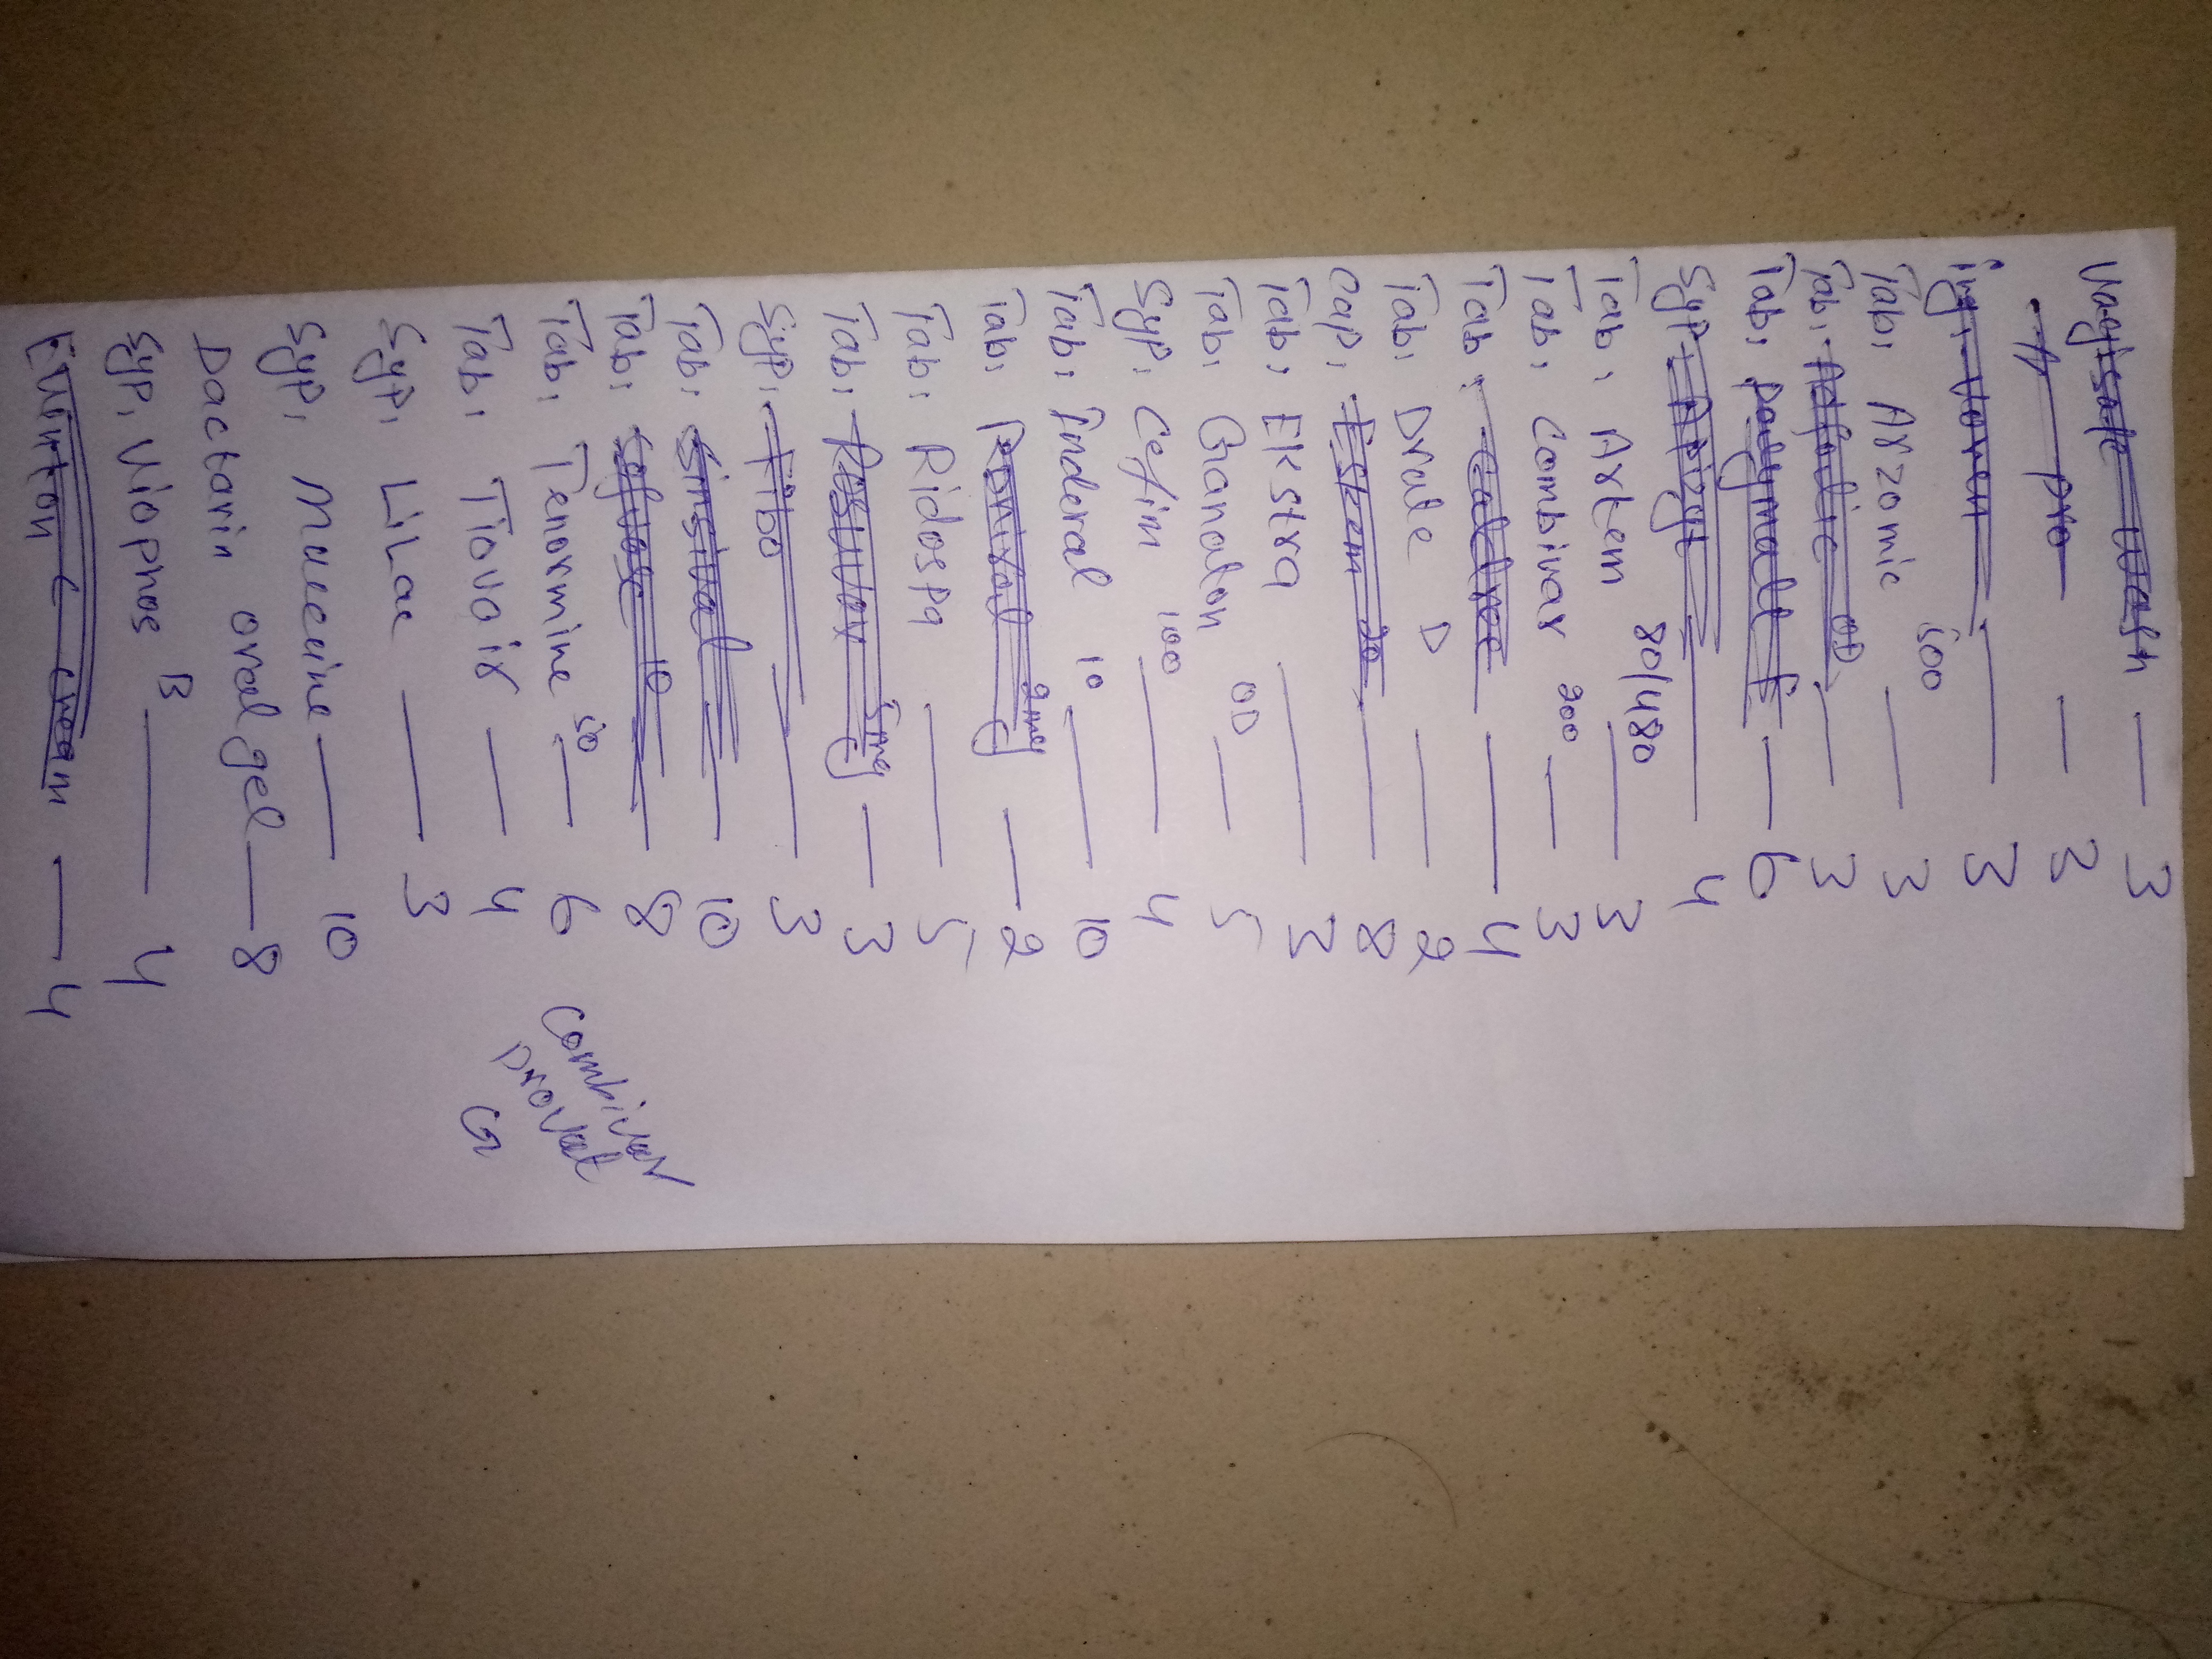 Vagisafe wash — 3
A pro — 3
inj. Voren — 3
Tab. Arzomic 500 — 3
Tab. OD — 3
Tab. Polymalt f — 6
Syp. — 4
Tab. Artem 80/480 — 3
Tab. Combivar 200 — 3
Tab. — 4
Tab. Drate D — 2
Cap. Eszom 20 — 8
Tab. Ekstra — 3
Tab. Ganaton OD — 5
Syp. Cefim 100 — 4
Tab. Inderal 10 — 10
Tab. 2mg — 2
Tab. Ridospa — 5
Tab. 5mg — 3
Syp. Fibo — 3
Tab. Sinsival — 10
Tab. 10 — 8
Tab. Tenormine 50 — 6
Tab. Tiovair — 4
Syp. Lilac — 3
Syp. Muccine — 10
Dactarin oral gel — 8
Syp. Viophos B — 4
cream — 4
Combivar
provat
G